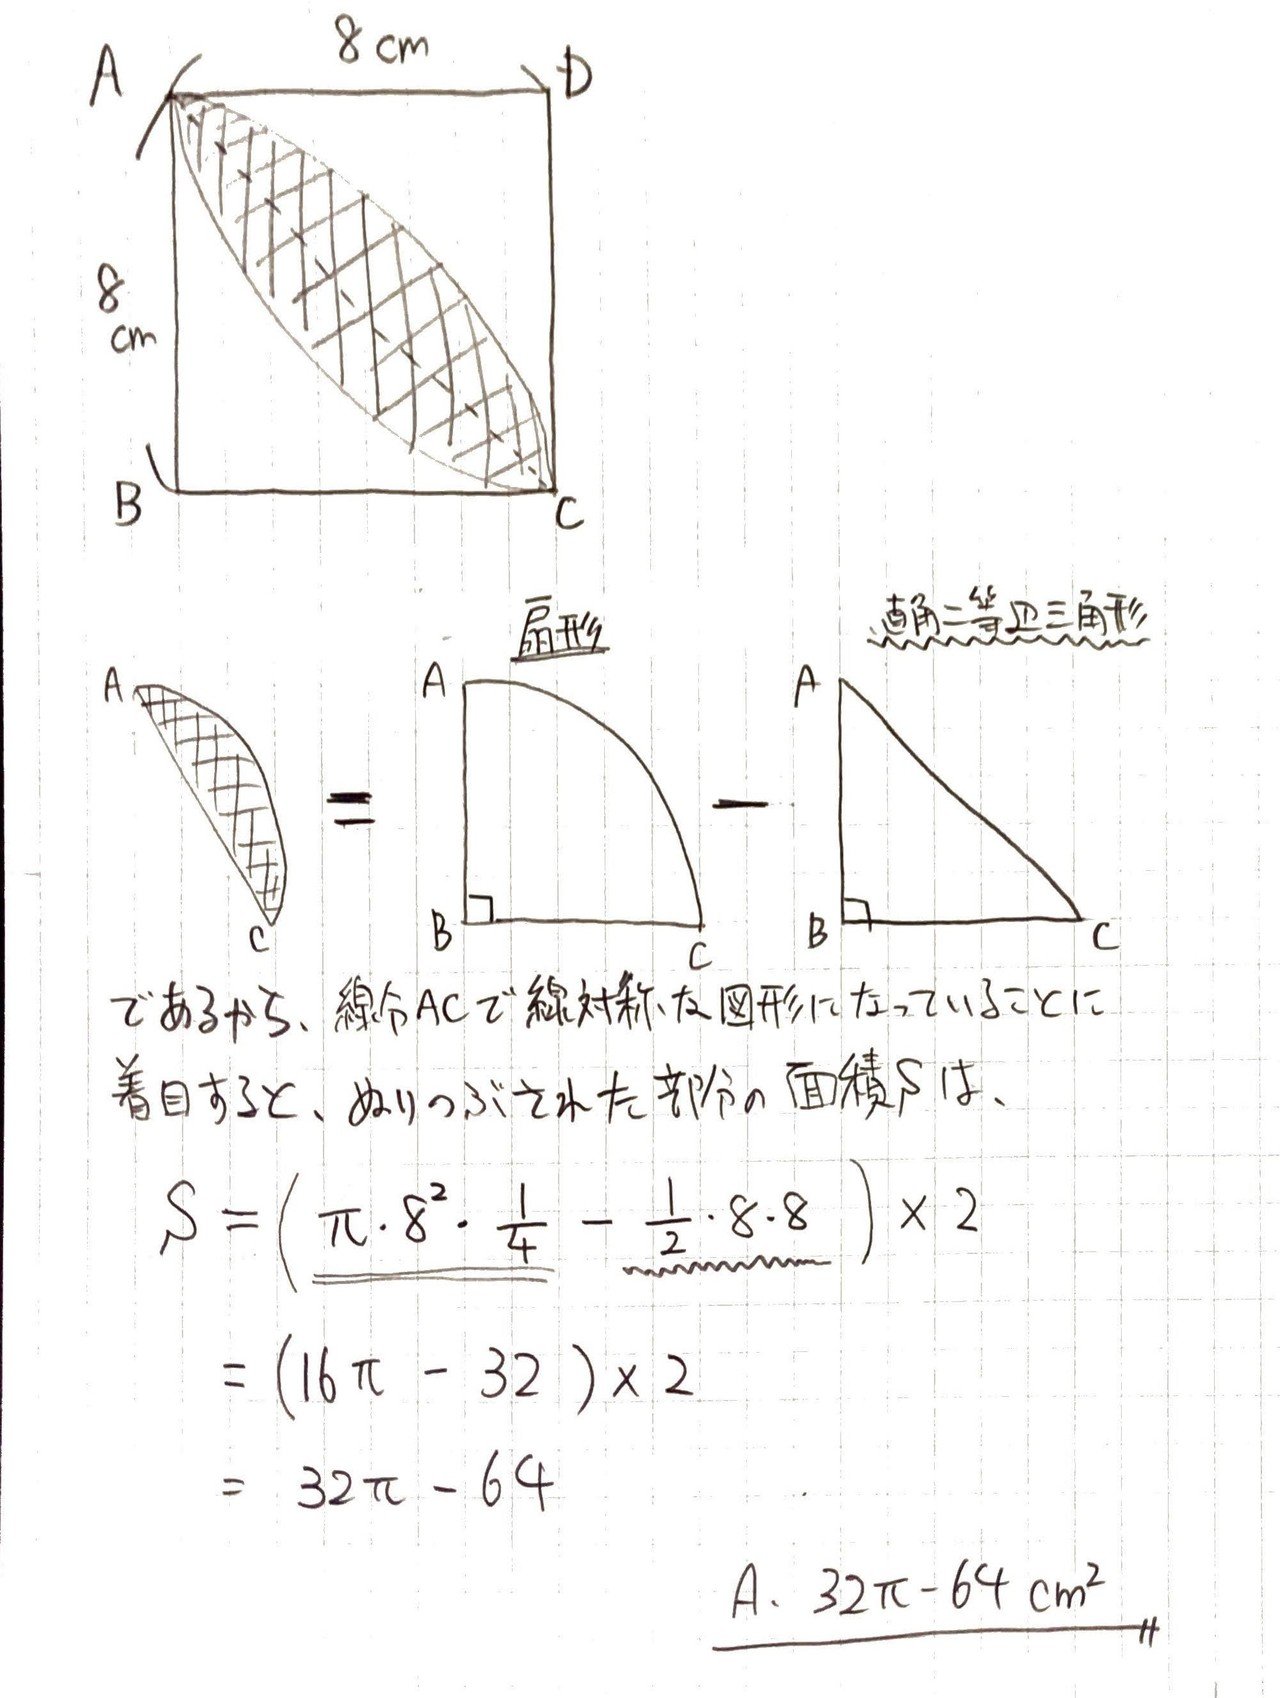 8cm
A
D
8
cm
B
C
扇形
直角二等辺三角形
A
A
A
=
−
C
B
C
B
C
であるから、線分ACで線対称な図形になっていることに
着目すると、ぬりつぶされた部分の面積Sは、
S = ( π・8²・1/4 − 1/2・8・8 ) × 2
= (16π − 32 ) × 2
= 32π − 64
A. 32π−64 cm²